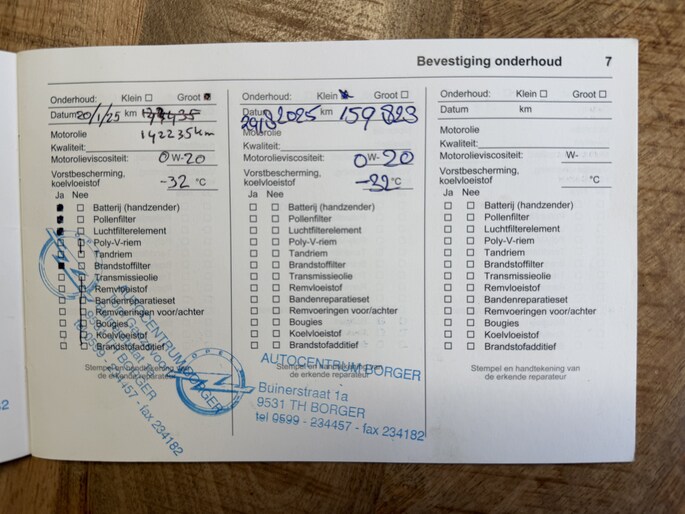 Bevestiging onderhoud 7
Onderhoud: Klein ☐ Groot ☒
Datum 20/1/25 km
142235km
Motorolie
Kwaliteit:
Motorolieviscositeit: 0W-20
Vorstbescherming,
koelvloeistof -32 °C
Ja Nee
Batterij (handzender)
Pollenfilter
Luchtfilterelement
Poly-V-riem
Tandriem
Brandstoffilter
Transmissieolie
Remvloeistof
Bandenreparatieset
Remvoeringen voor/achter
Bougies
Koelvloeistof
Brandstofadditief
Stempel en handtekening van
de erkende reparateur
AUTOCENTRUM BORGER
BORGER
0599 - 234457 - fax 234182
Onderhoud: Klein ☒ Groot ☐
Datum 2025 km 159823
Motorolie
Kwaliteit:
Motorolieviscositeit: 0W-20
Vorstbescherming,
koelvloeistof °C
Ja Nee
Batterij (handzender)
Pollenfilter
Luchtfilterelement
Poly-V-riem
Tandriem
Brandstoffilter
Transmissieolie
Remvloeistof
Bandenreparatieset
Remvoeringen voor/achter
Bougies
Koelvloeistof
Brandstofadditief
Stempel en handtekening van
de erkende reparateur
OPEL
AUTOCENTRUM BORGER
Buinerstraat 1a
9531 TH BORGER
tel 0599 - 234457 - fax 234182
Onderhoud: Klein ☐ Groot ☐
Datum km
Motorolie
Kwaliteit:
Motorolieviscositeit: W-
Vorstbescherming,
koelvloeistof °C
Ja Nee
Batterij (handzender)
Pollenfilter
Luchtfilterelement
Poly-V-riem
Tandriem
Brandstoffilter
Transmissieolie
Remvloeistof
Bandenreparatieset
Remvoeringen voor/achter
Bougies
Koelvloeistof
Brandstofadditief
Stempel en handtekening van
de erkende reparateur